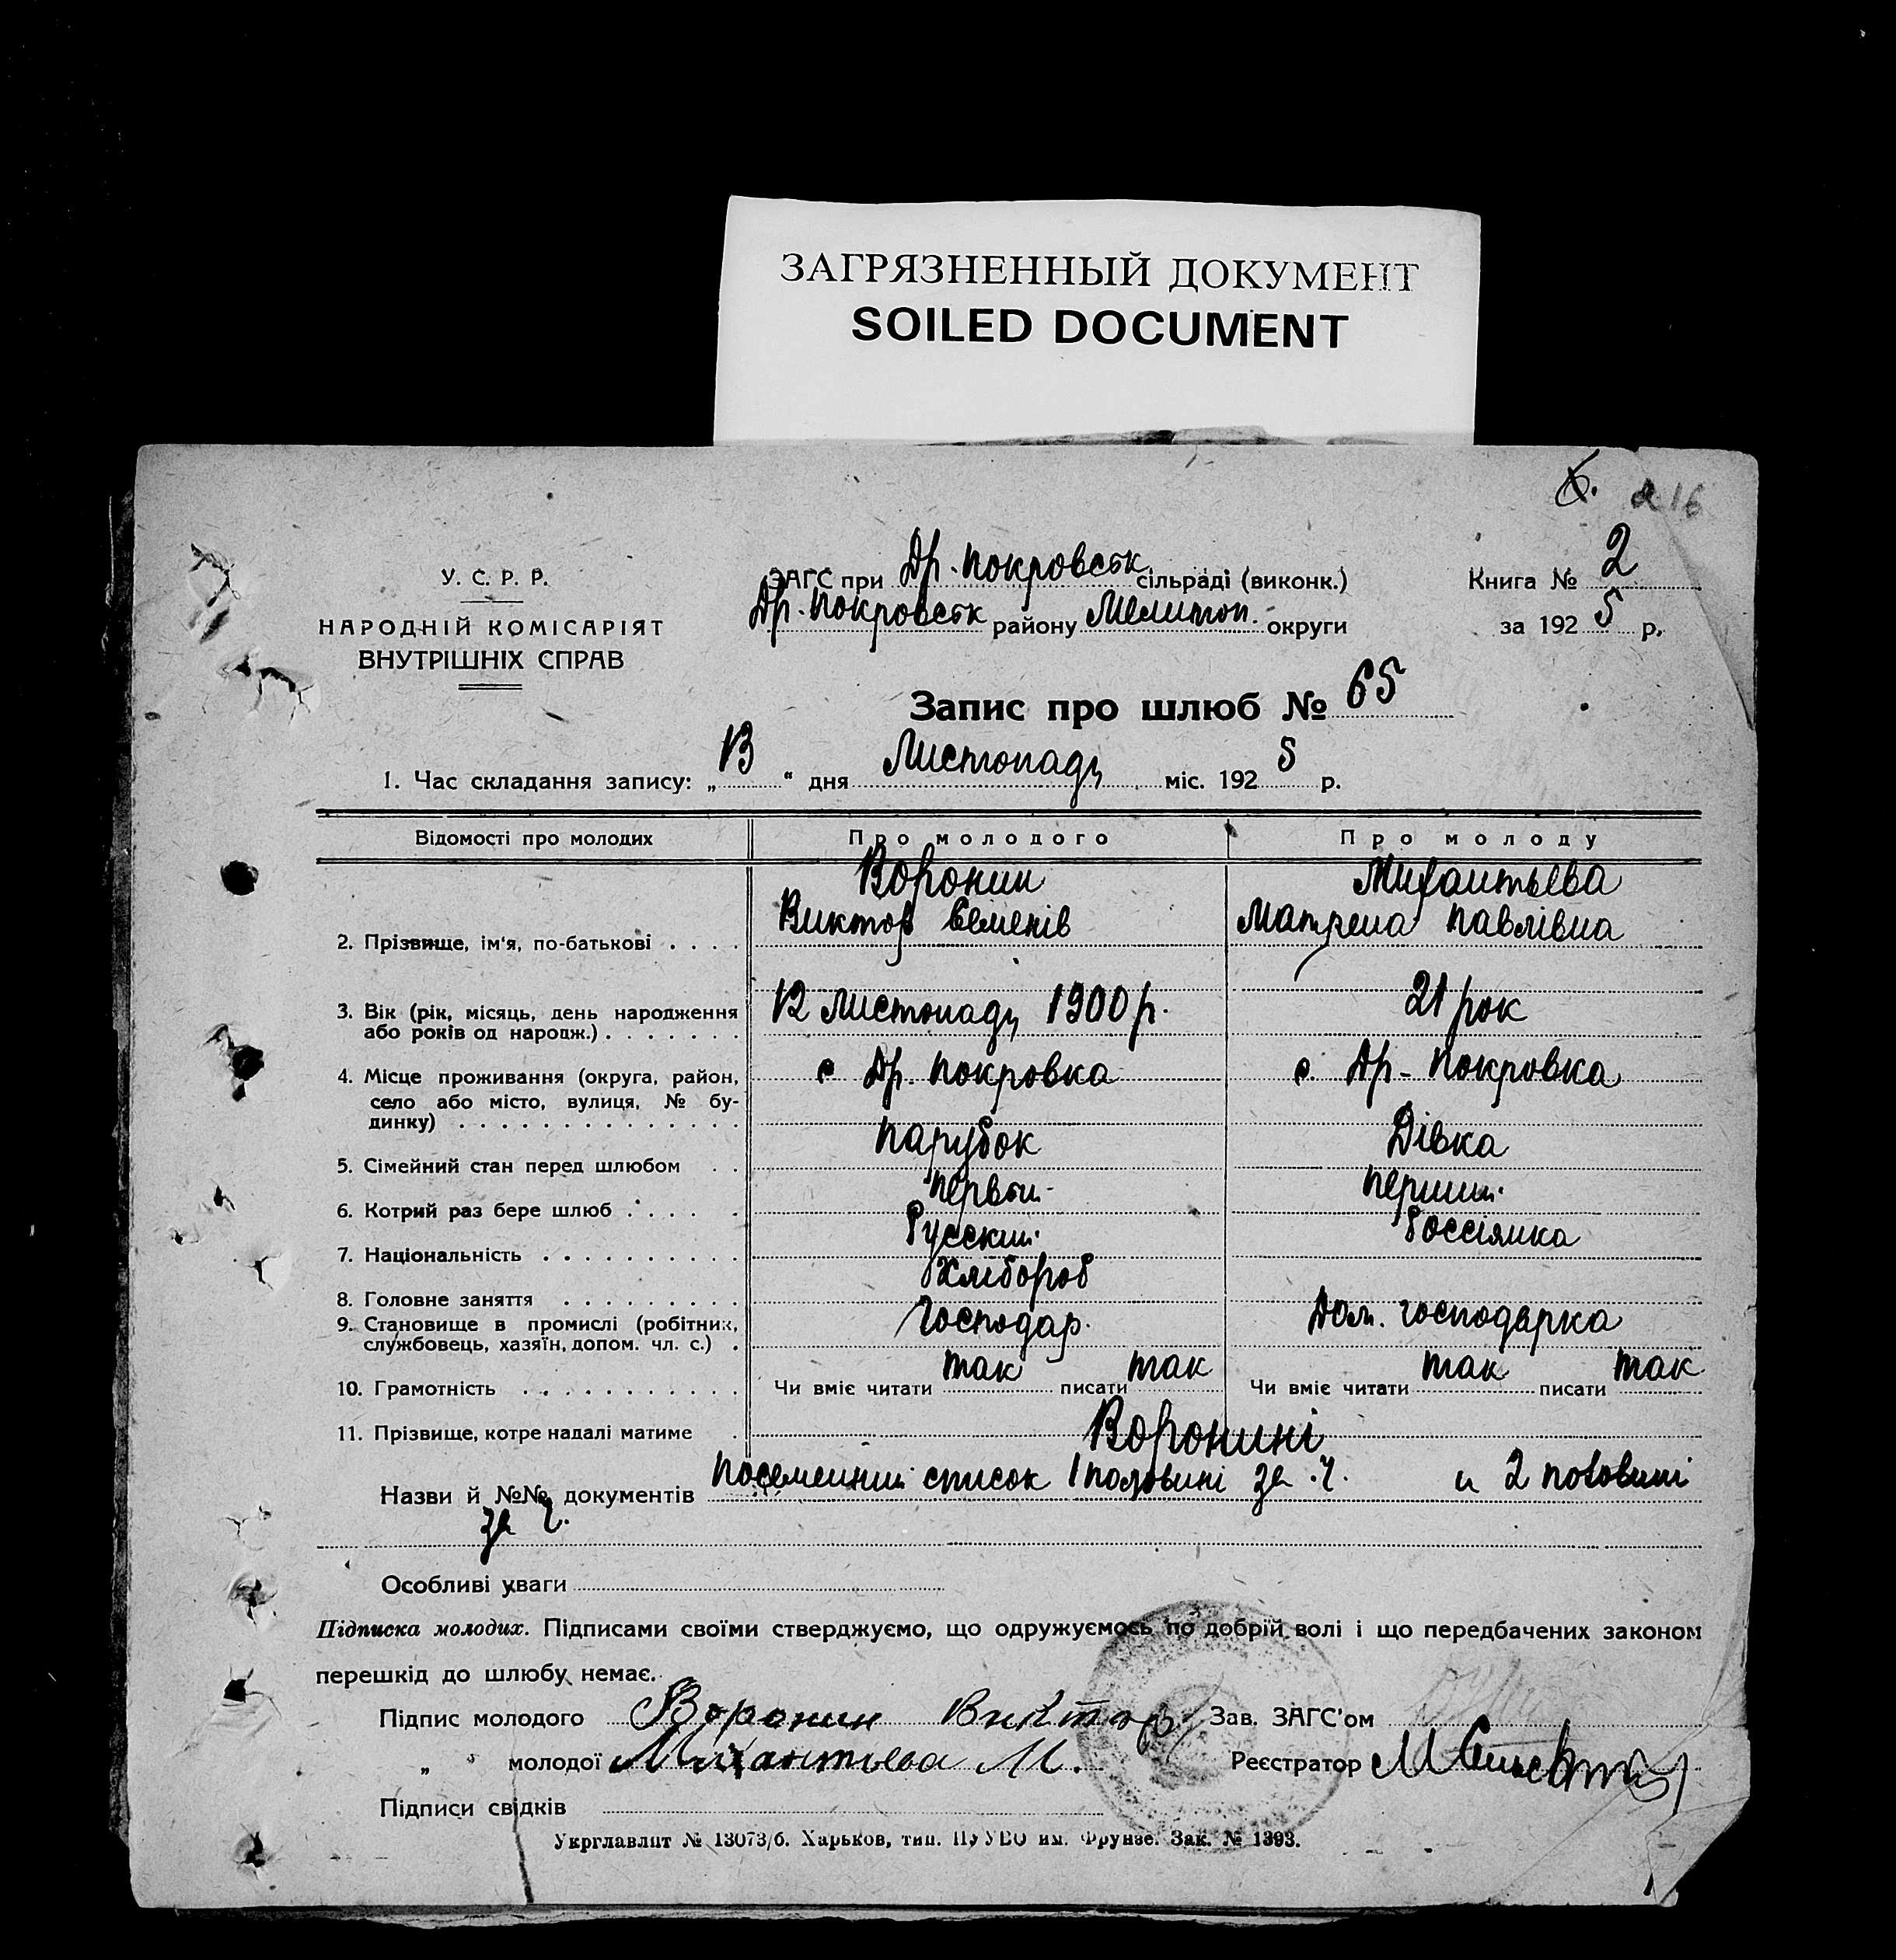 ЗАГРЯЗНЕННЫЙ ДОКУМЕНТ
SOILED DOCUMENT
216
У. С. Р. Р.
НАРОДНІЙ КОМІСАРІЯТ
ВНУТРІШНІХ СПРАВ
ЗАГС при Др. Покровськ сільраді (виконк.)
Др. Покровськ району Мелитоп. округи
Книга № 2
за 1925 р.
Запис про шлюб № 65
1. Час складання запису: „13“ дня Листопаду міс. 1925 р.
Відомості про молодих Про молодого Про молоду
Воронин
Виктор Семенів Матрена Павлівна
2. Прізвище, ім'я, по-батькові
3. Вік (рік, місяць, день народження 12 Листопаду 1900 р. 21 рок
або років од народж.)
4. Місце проживання (округа, район, с Др. Покровка с. Др-Покровка
село або місто, вулиця, № бу-
динку)
5. Сімейний стан перед шлюбом Парубок Дівка
6. Котрий раз бере шлюб Первый Перший
7. Національність Русский Россіянка
8. Головне заняття Хлібороб
9. Становище в промислі (робітник, Господар. Дом. господарка
службовець, хазяїн, допом. чл. с.)
10. Грамотність Чи вміє читати так писати так Чи вміє читати так писати так
11. Прізвище, котре надалі матиме Вороніні
Назви й №№ документів Посемейний список 1 половині за ч. и 2 половині
за ч.
Особливі уваги
Підписка молодих. Підписами своїми стверджуємо, що одружуємось по добрій волі і що передбачених законом
перешкід до шлюбу немає.
Підпис молодого Воронин Виктор Зав. ЗАГС'ом
„ молодої М. Реєстратор
Підписи свідків
Укрглавліт № 13073/б. Харьков, тип. ПУУВО им. Фрунзе. Зак. № 1393.